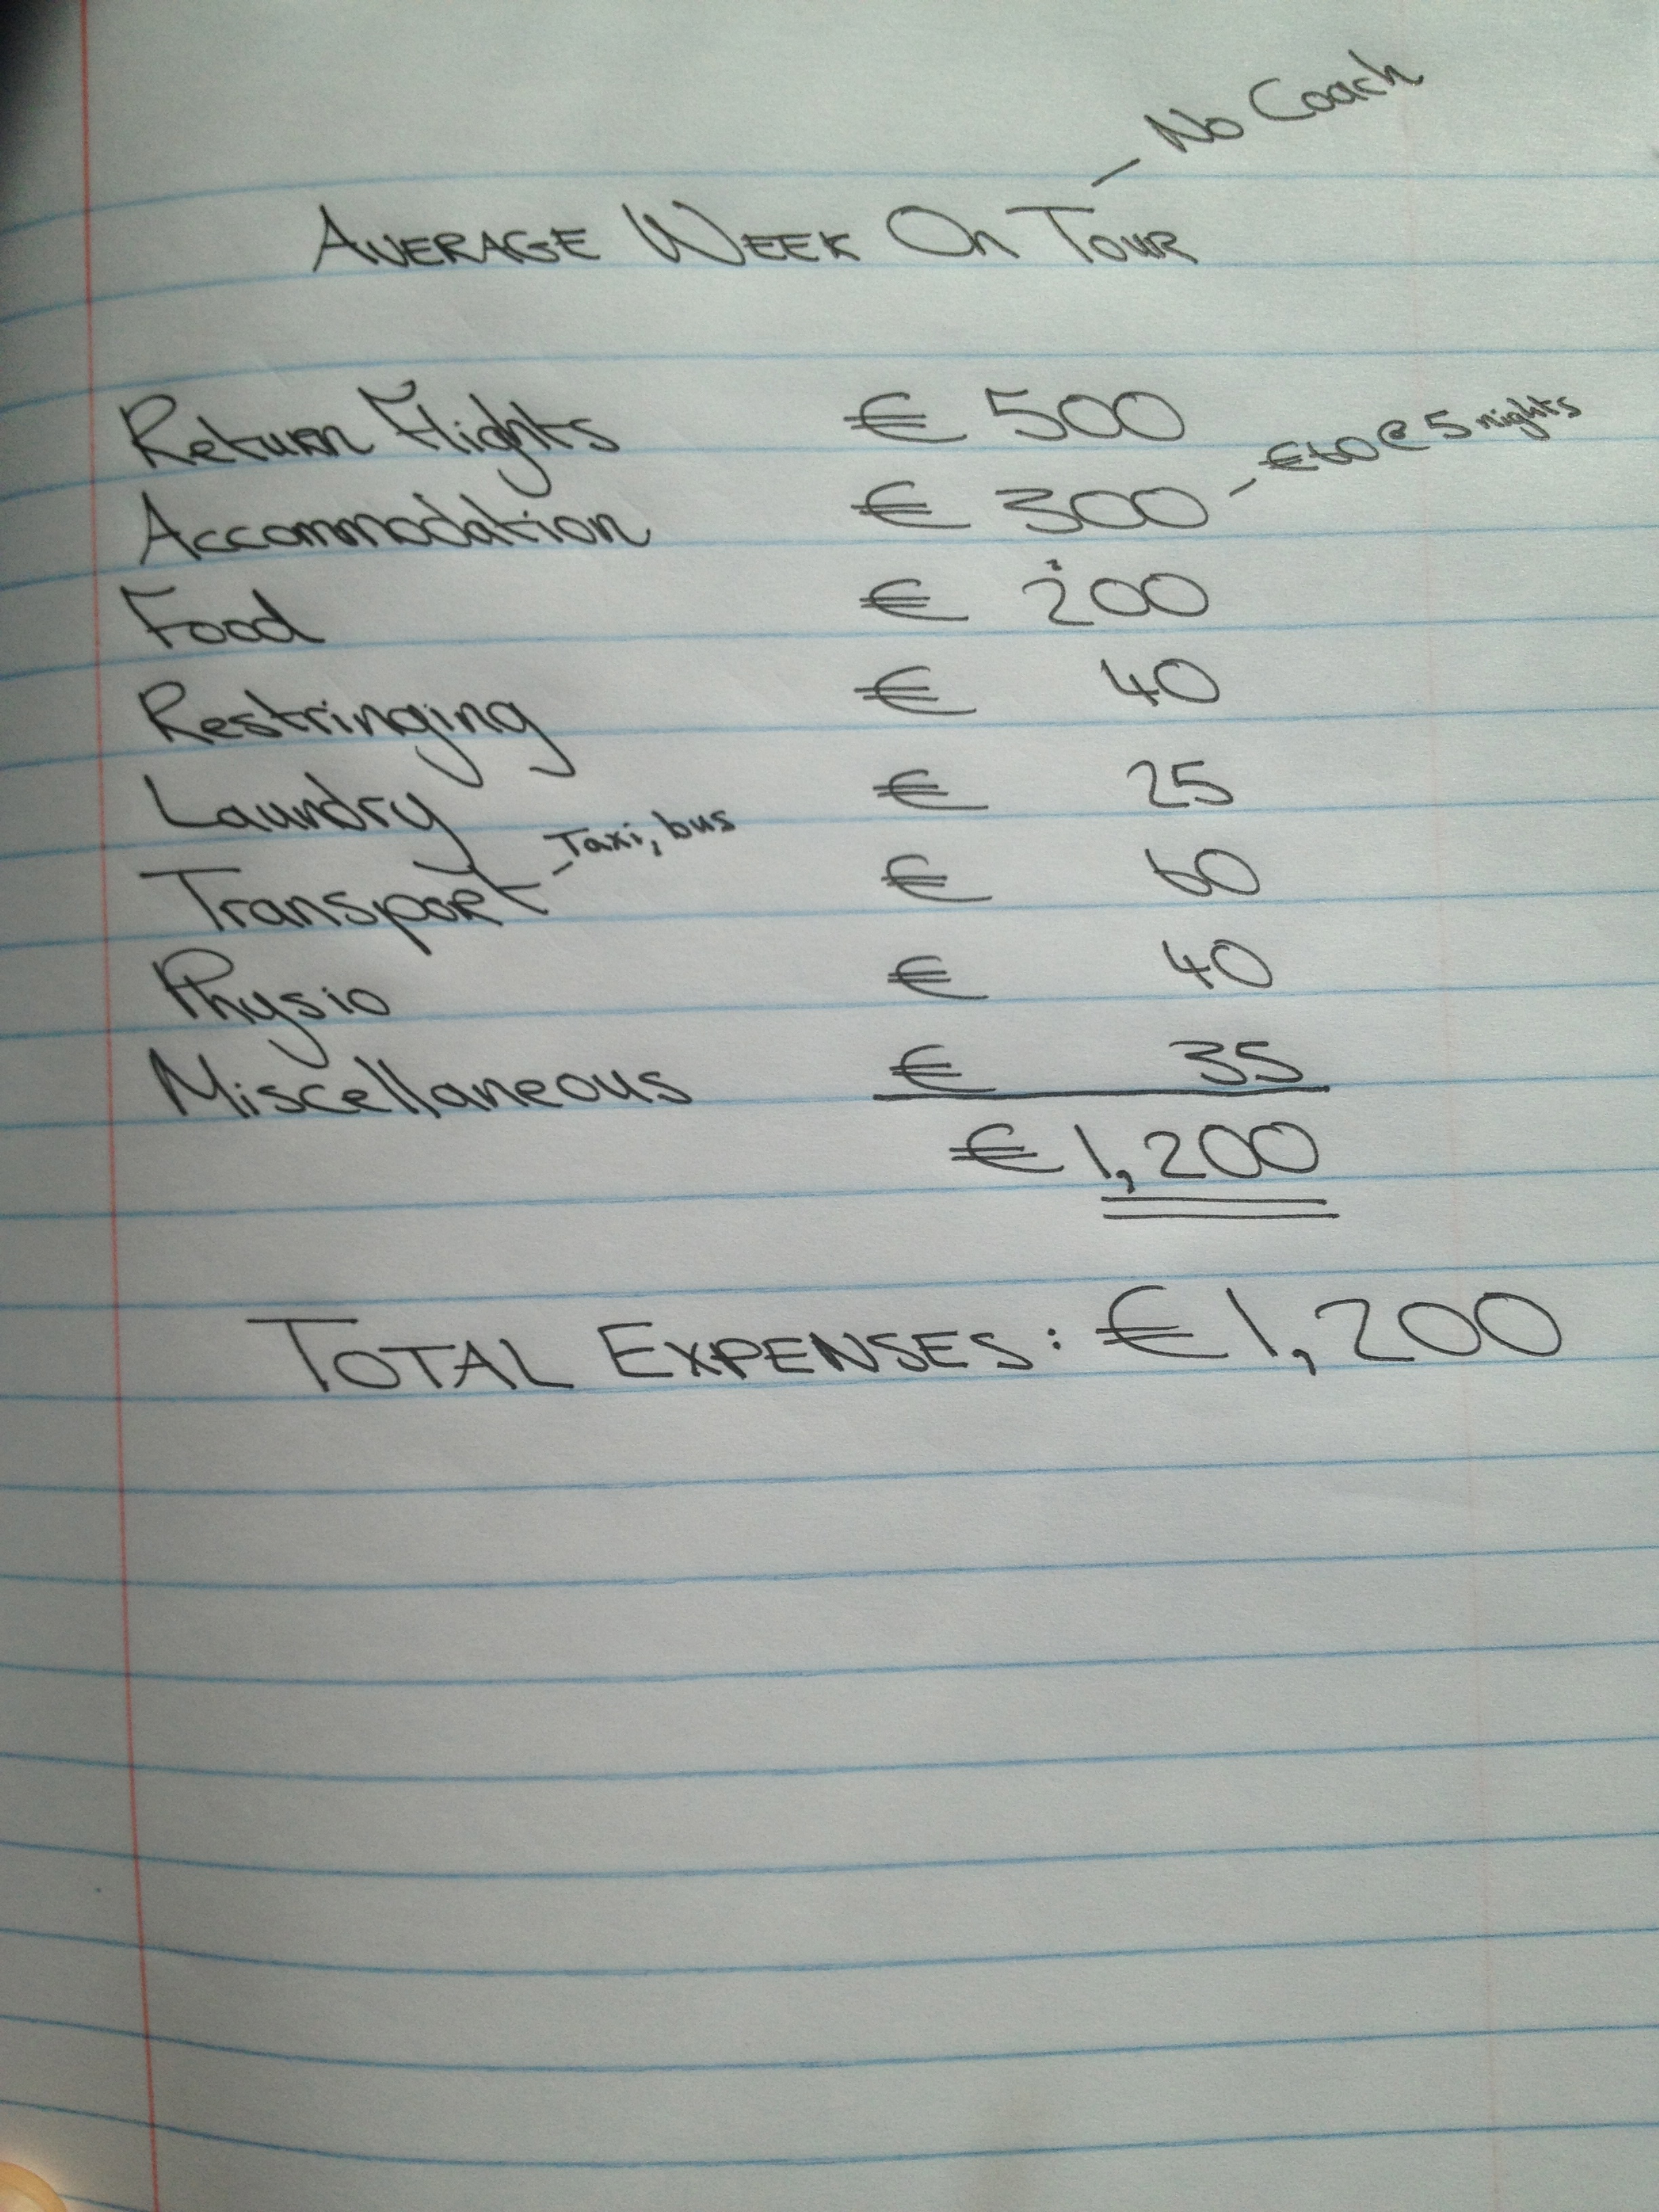 AVERAGE WEEK ON TOUR - No Coach
Return Flights € 500
Accommodation € 300 - €60 @ 5 nights
Food € 200
Restringing € 40
Laundry € 25
Transport - Taxi, bus € 60
Physio € 40
Miscellaneous € 35
€ 1,200
TOTAL EXPENSES: € 1,200